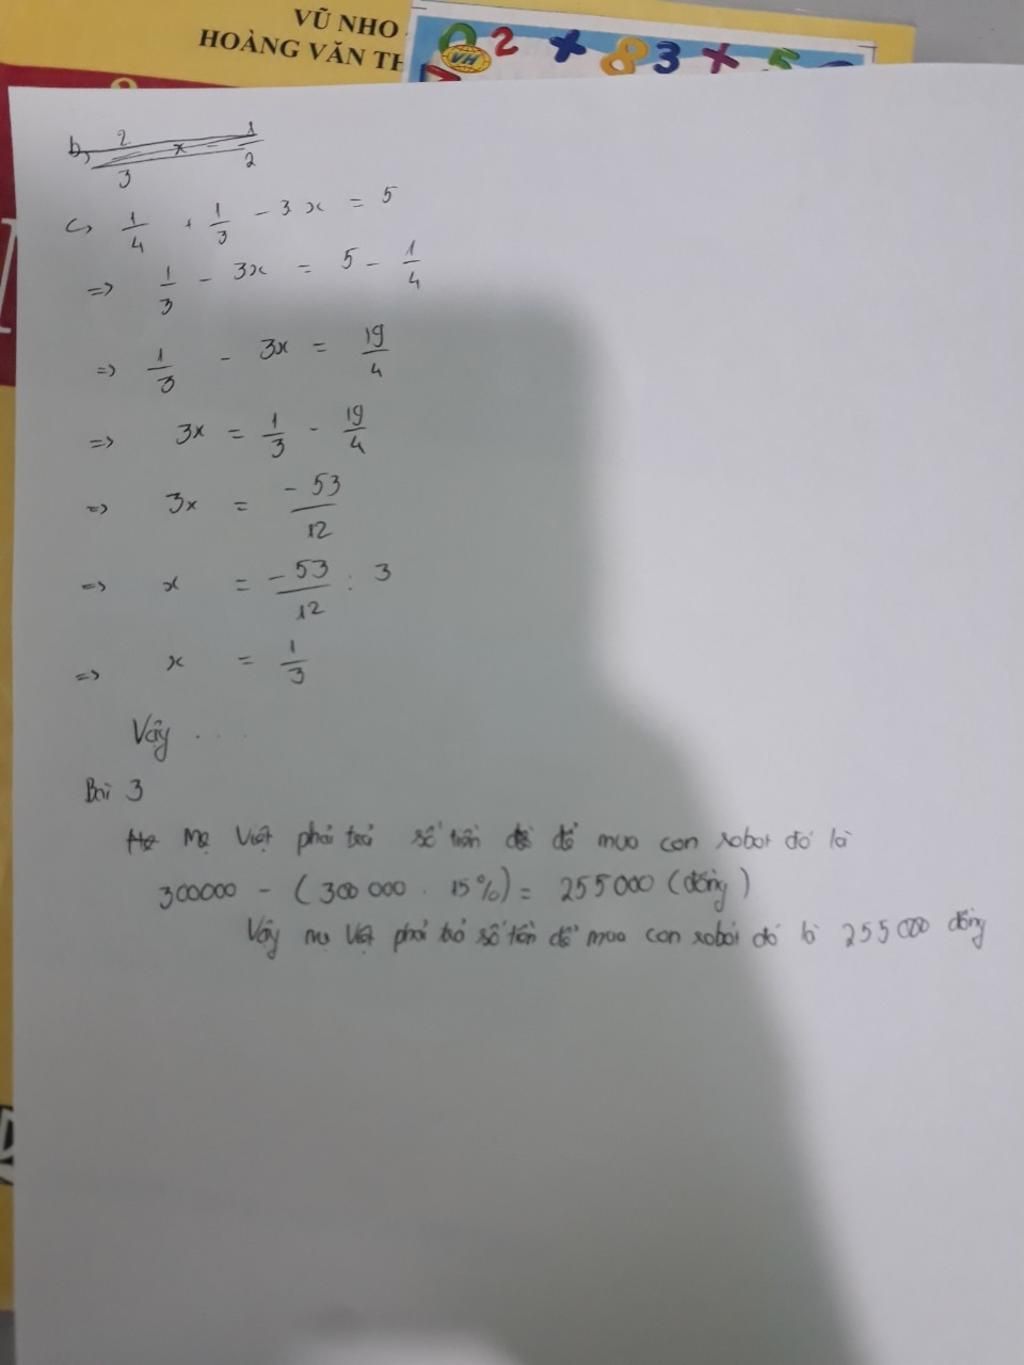 VŨ NHO
HOÀNG VĂN TH
VH
2 × 8 3 × 5
b, 2/3 x - 1/2
c, 1/4 + 1/3 - 3x = 5
=> 1/3 - 3x = 5 - 1/4
=> 1/3 - 3x = 19/4
=> 3x = 1/3 - 19/4
=> 3x = -53/12
=> x = -53/12 : 3
=> x = 1/3
Vậy ....
Bài 3
Mẹ Việt phải trả số tiền để mua con robot đó là
300000 - (300 000 . 15%) = 255000 (đồng)
Vậy mẹ Việt phải trả số tiền để mua con robot đó là 255000 đồng